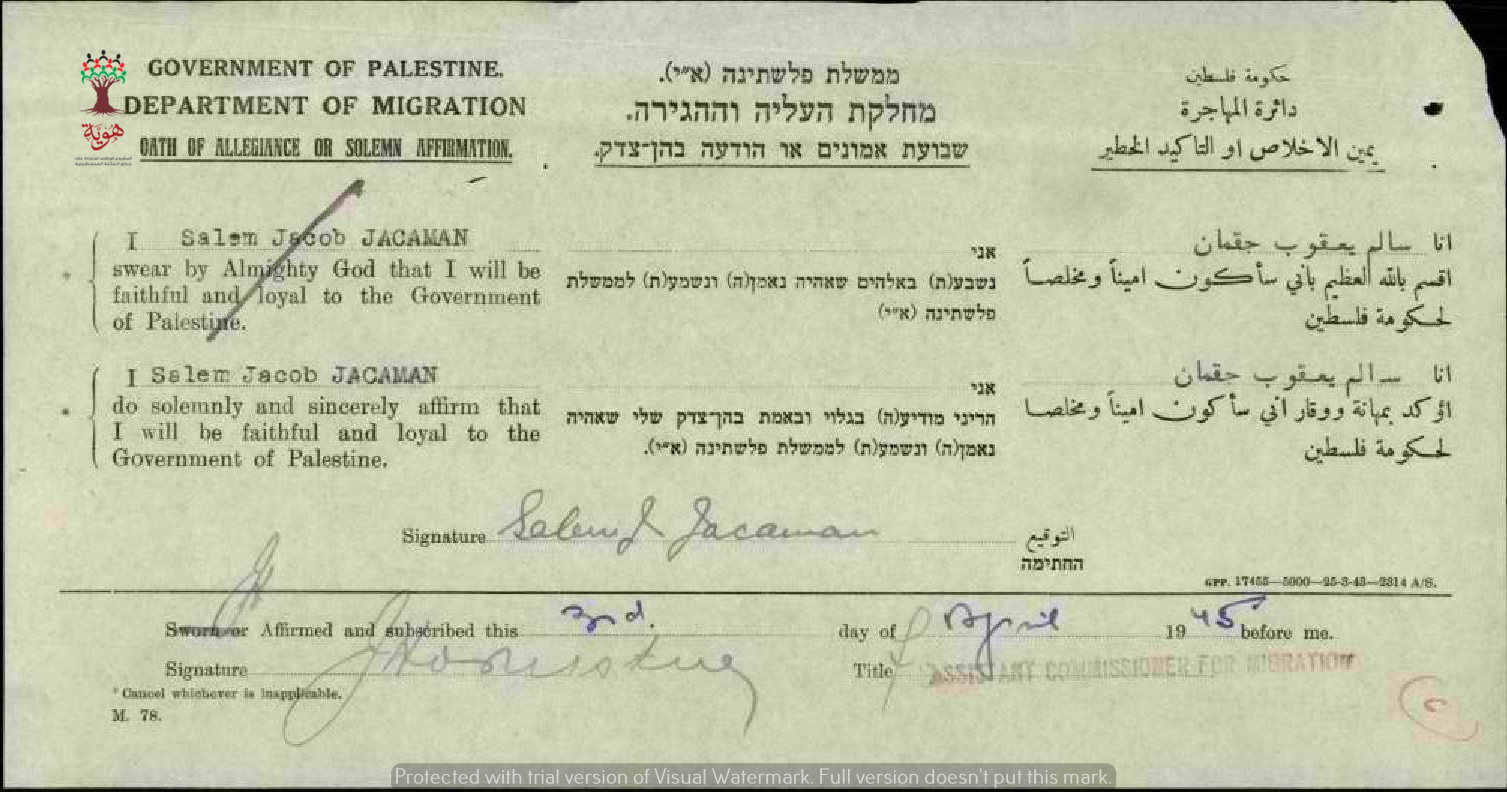 GOVERNMENT OF PALESTINE.
DEPARTMENT OF MIGRATION
OATH OF ALLEGIANCE OR SOLEMN AFFIRMATION.
هوية
ממשלת פלשתינה (א״י).
מחלקת העליה וההגירה.
שבועת אמונים או הודעה בהן־צדק.
حكومة فلسطين
دائرة المهاجرة
يمين الاخلاص او التاكيد الخطير
I Salem Jacob JACAMAN
swear by Almighty God that I will be
faithful and loyal to the Government
of Palestine.
אני
נשבע(ת) באלהים שאהיה נאמן(ה) ונשמע(ת) לממשלת
פלשתינה (א״י)
انا سالم يعقوب حقمان
اقسم بالله العظيم باني سأكون اميناً ومخلصاً
لحكومة فلسطين
* I Salem Jacob JACAMAN
do solemnly and sincerely affirm that
I will be faithful and loyal to the
Government of Palestine.
אני
הריני מודיע(ה) בגלוי ובאמת בהן־צדק שלי שאהיה
נאמן(ה) ונשמע(ת) לממשלת פלשתינה (א״י).
انا سالم يعقوب حقمان
اؤكد بمهانة ووقار اني سأكون اميناً ومخلصا
لحكومة فلسطين
Signature Salem J Jacaman التوقيع
החתימה
GPP. 17455—5000—25-3-43—2314 A/S.
Sworn or Affirmed and subscribed this 3rd. day of April 1945 before me.
Signature Title ASSISTANT COMMISSIONER FOR MIGRATION
* Cancel whichever is inapplicable.
M. 78.
Protected with trial version of Visual Watermark. Full version doesn't put this mark.